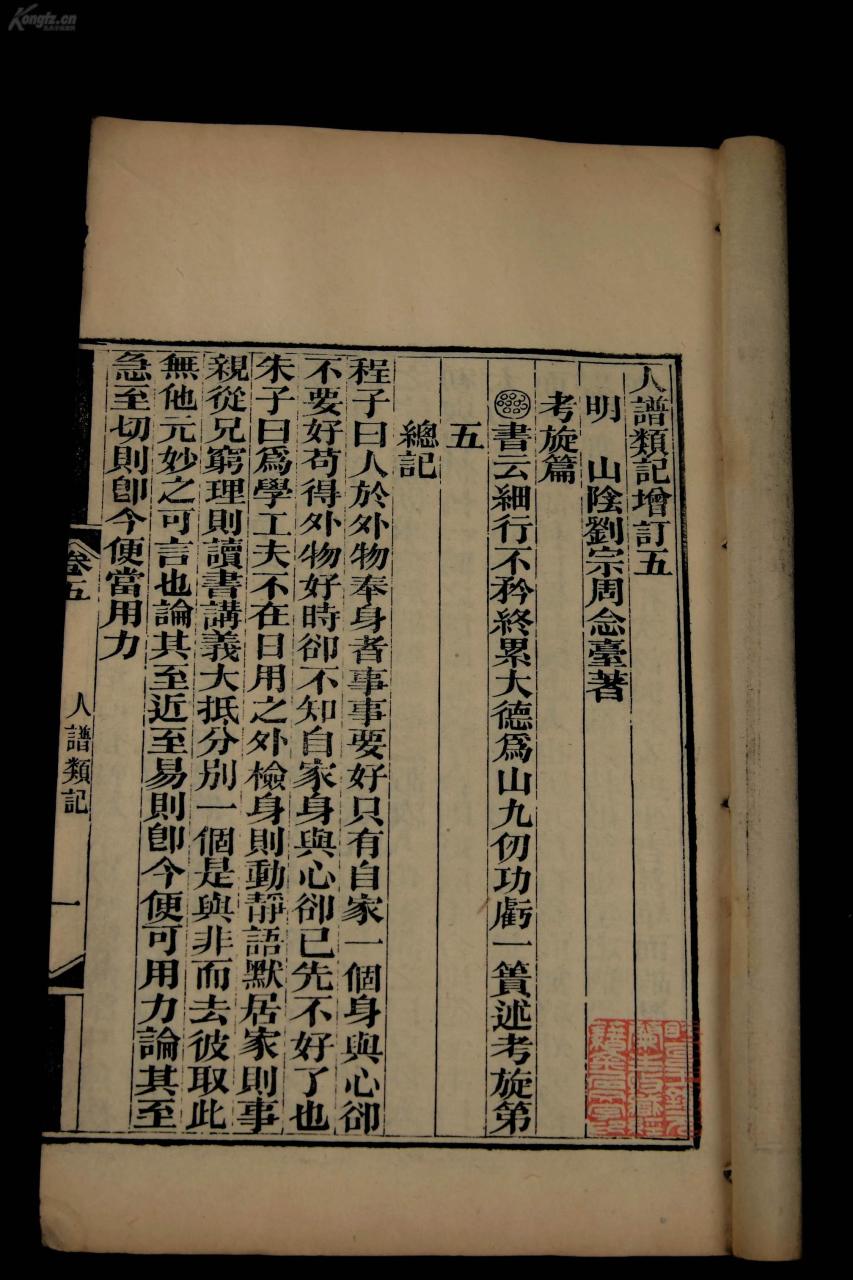 人譜類記增訂五
明 山陰劉宗周念臺著
考旋篇
書云細行不矜終累大德爲山九仞功虧一簣述考旋第
五
總記
程子曰人於外物奉身者事事要好只有自家一個身與心卻
不要好苟得外物好時卻不知自家身與心卻已先不好了也
朱子曰爲學工夫不在日用之外檢身則動靜語默居家則事
親從兄窮理則讀書講義大抵分別一個是與非而去彼取此
無他元妙之可言也論其至近至易則卽今便可用力論其至
急至切則卽今便當用力
卷五 人譜類記 一
Kongfz.cn